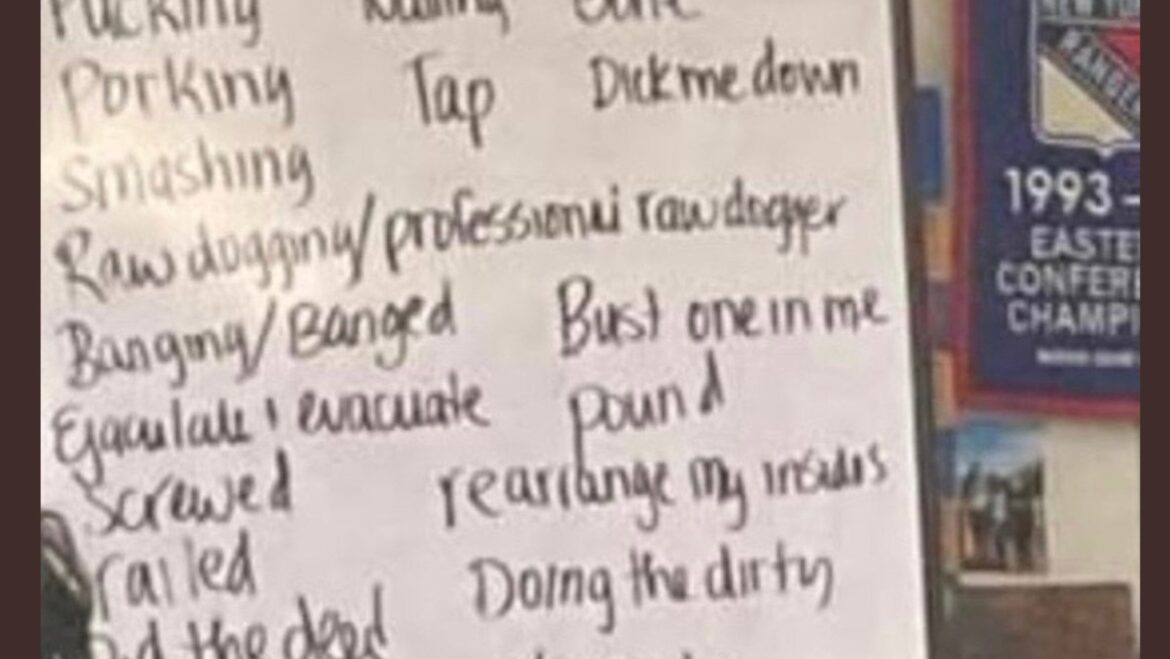 Porking Tap Dick me down
Smashing
Raw dogging/professional raw dogger
Banging/Banged Bust one in me
Ejaculate & evacuate pound
Screwed rearrange my insides
railed Doing the dirty
the deed
NEW YORK
RANGERS
1993 -
EASTE
CONFERE
CHAMPI